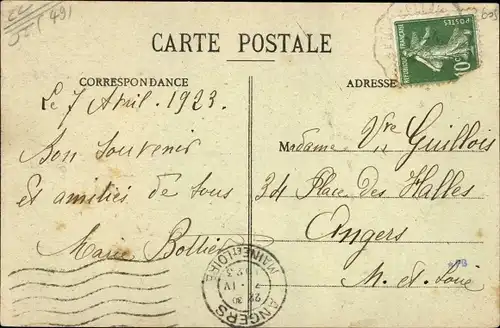 CARTE POSTALE
CORRESPONDANCE
ADRESSE
Le 7 Avril. 1923.
Bon Souvenir
et amitiés de tous
Marie Bollier
Madame Vve Guillois
34 Place des Halles
Angers
M. et. Loire
POSTES
RÉPUBLIQUE FRANÇAISE
10c
ANGERS
MAINE ET LOIRE
7 - IV